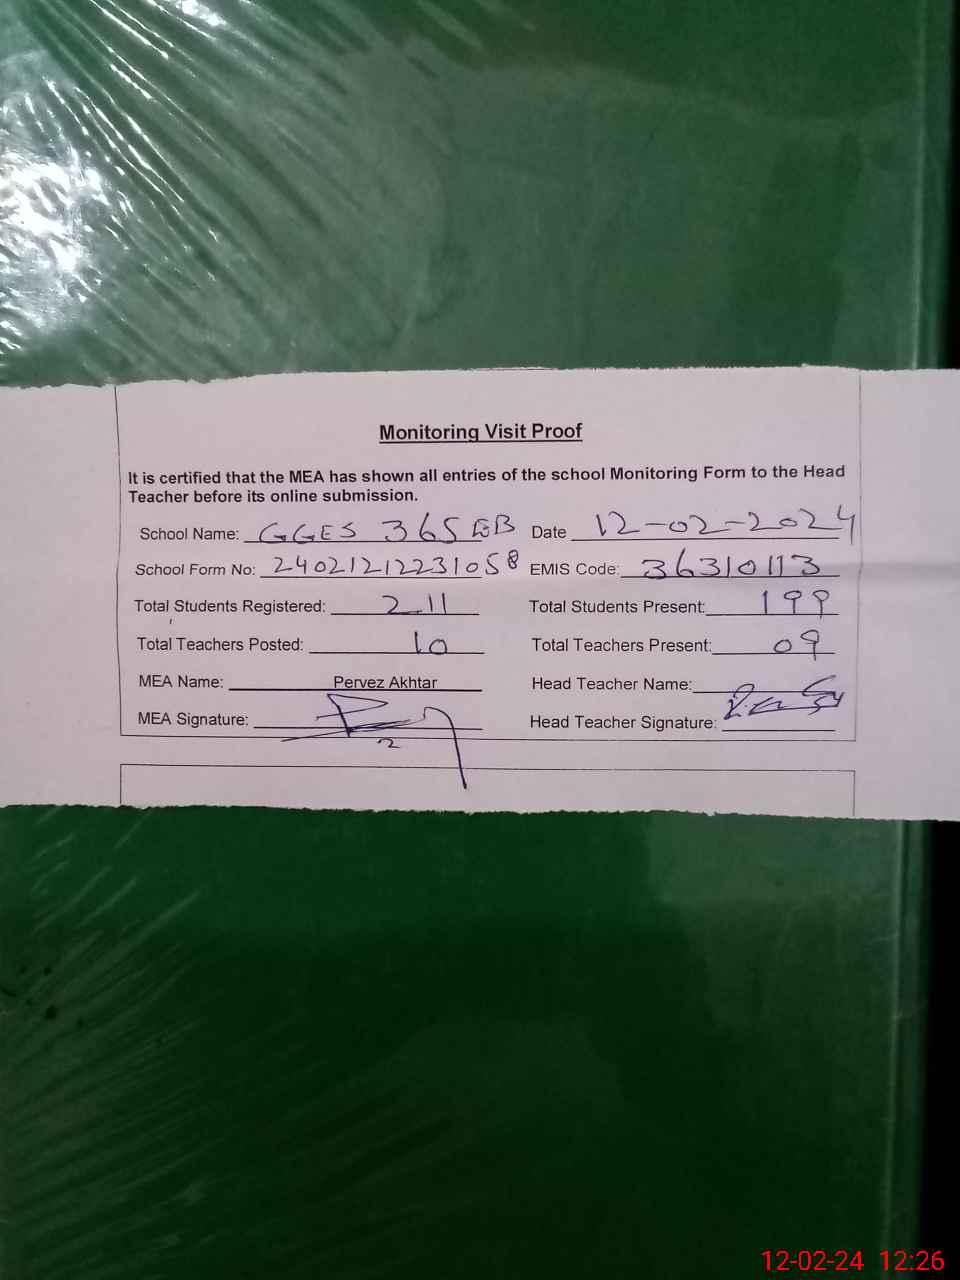 Monitoring Visit Proof
It is certified that the MEA has shown all entries of the school Monitoring Form to the Head
Teacher before its online submission.
School Name: GGES 365 EB Date 12-02-2024
School Form No: 24021212231058 EMIS Code: 36310113
Total Students Registered: 211 Total Students Present: 199
Total Teachers Posted: 10 Total Teachers Present: 09
MEA Name: Pervez Akhtar Head Teacher Name:
MEA Signature: Head Teacher Signature:
12-02-24 12:26